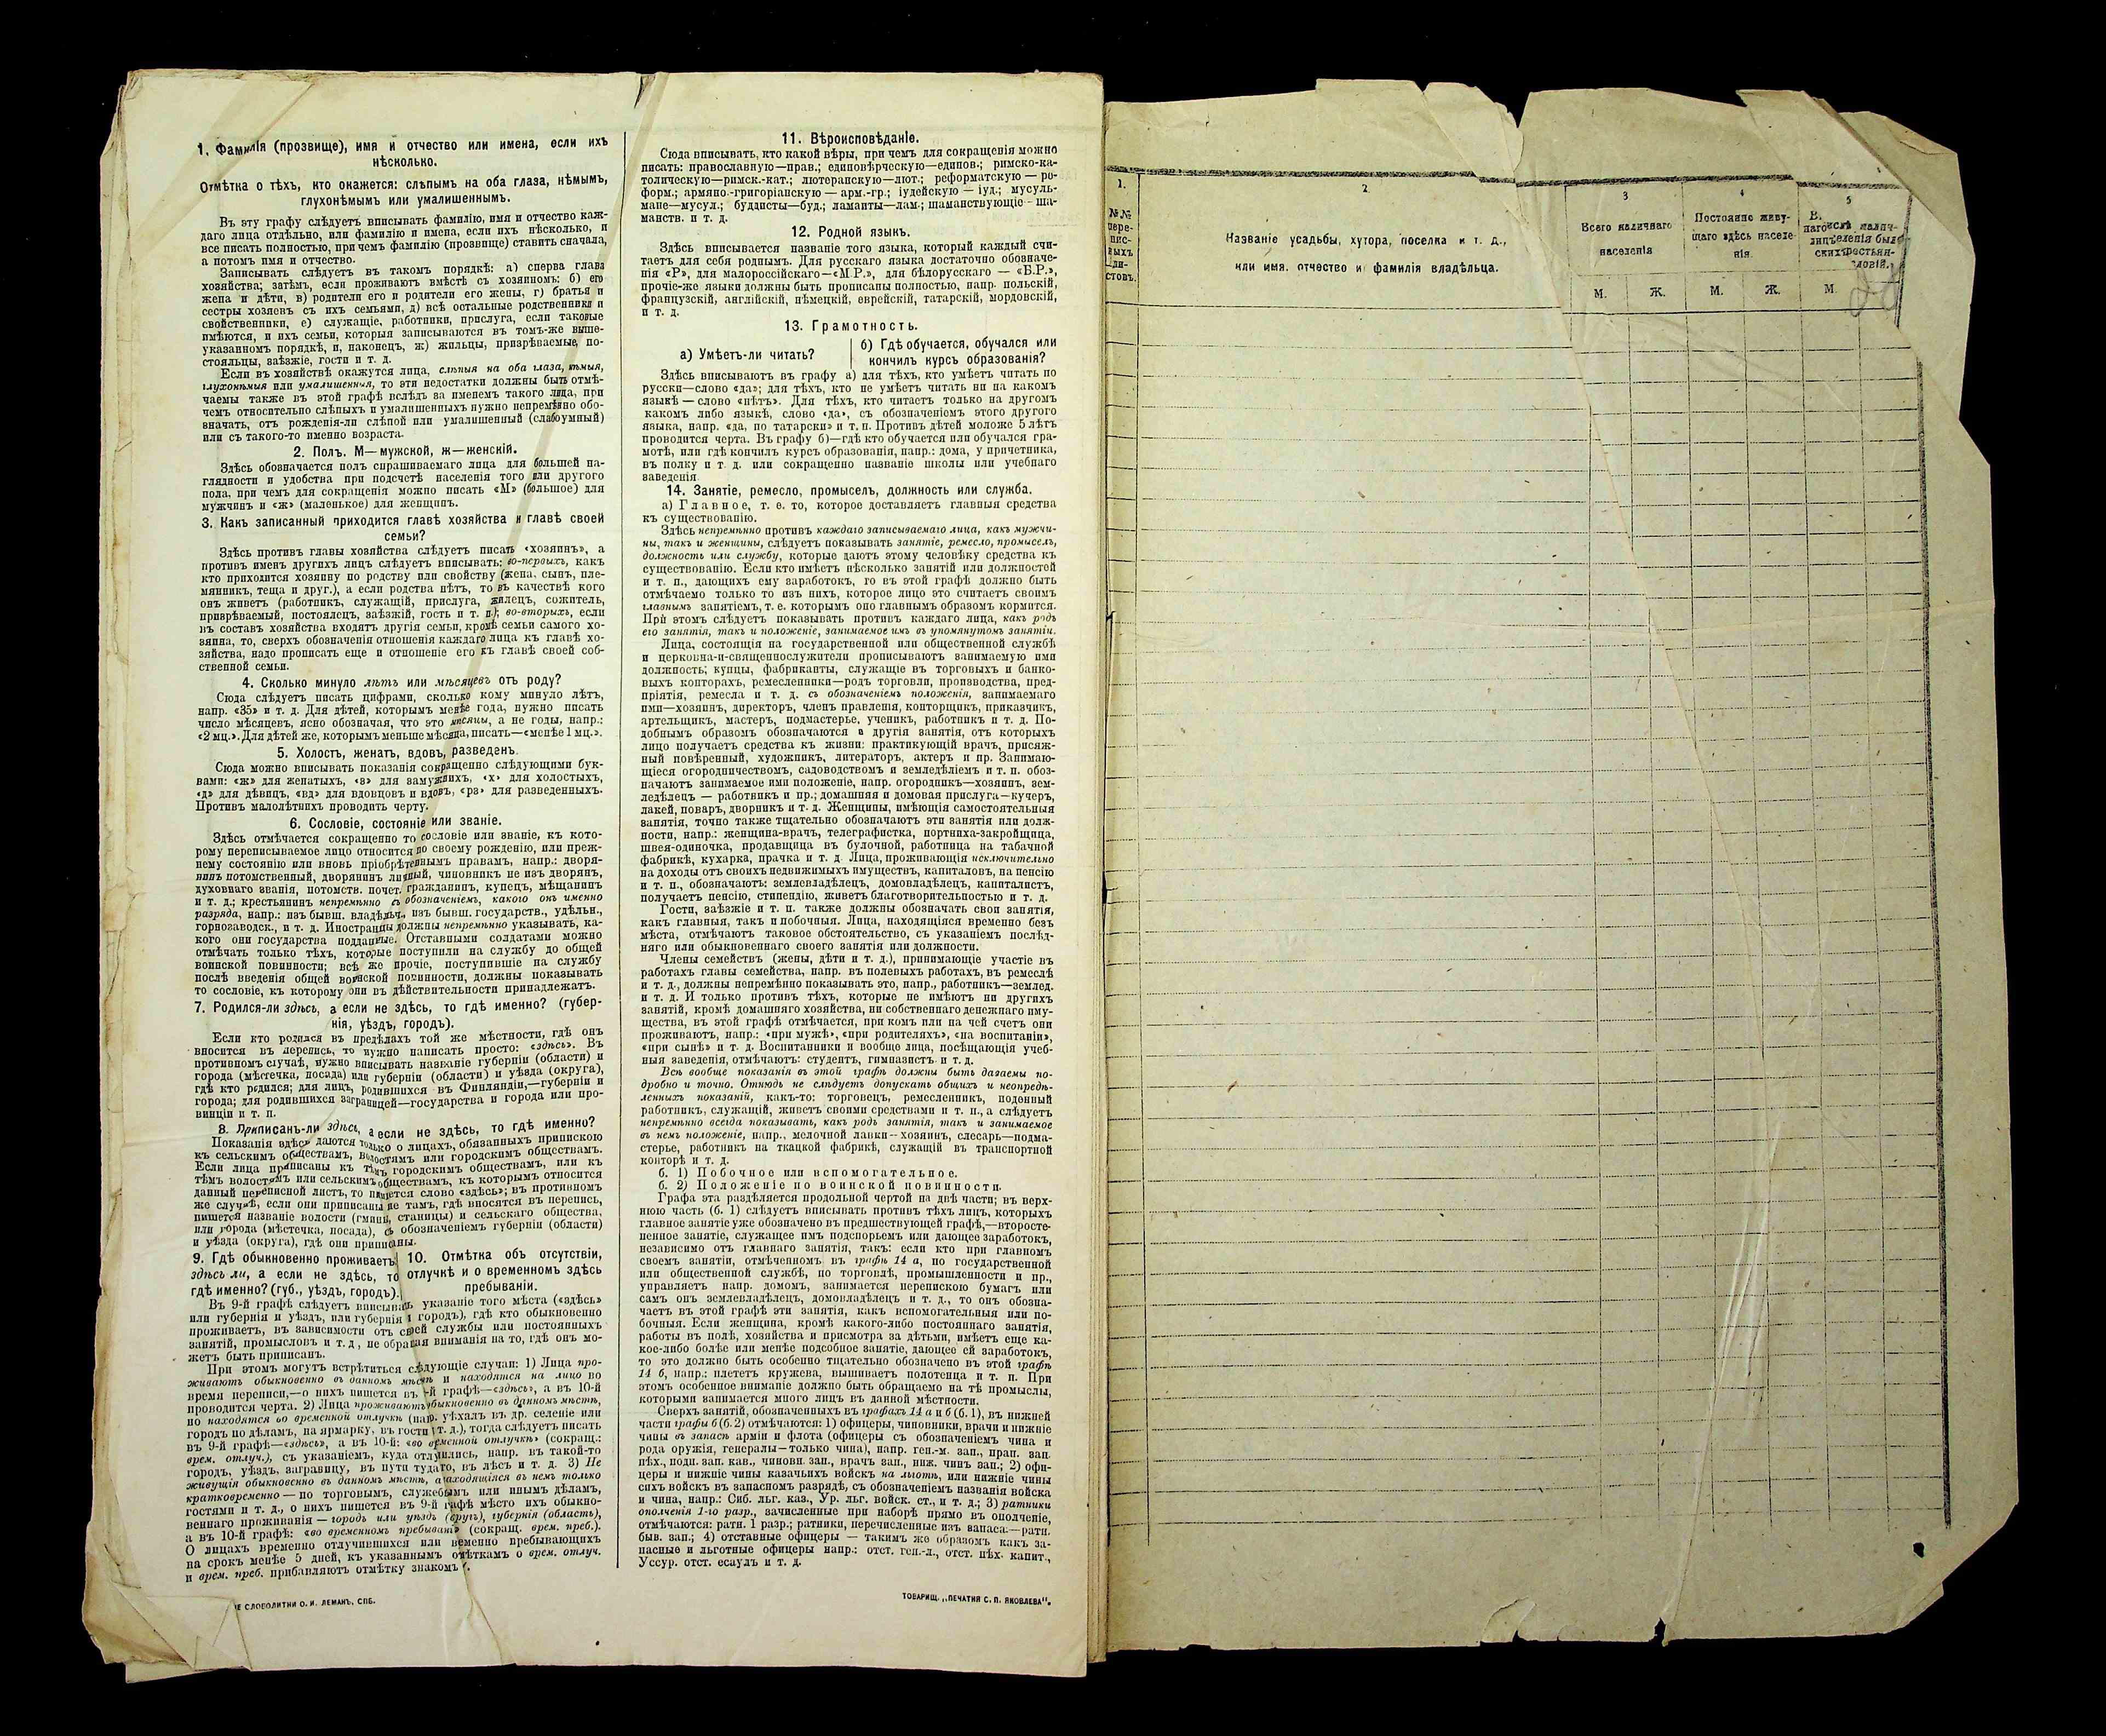 1. Фамилія (прозвище), имя и отчество или имена, если ихъ
нѣсколько.
Отмѣтка о тѣхъ, кто окажется: слѣпымъ на оба глаза, нѣмымъ,
глухонѣмымъ или умалишеннымъ.
Въ эту графу слѣдуетъ вписывать фамилію, имя и отчество каж-
даго лица отдѣльно, или фамилію и имена, если ихъ нѣсколько, и
все писать полностью, при чемъ фамилію (прозвище) ставить сначала,
а потомъ имя и отчество.
Записывать слѣдуетъ въ такомъ порядкѣ: а) сперва глава
хозяйства; затѣмъ, если проживаютъ вмѣстѣ съ хозяиномъ: б) его
жена и дѣти, в) родители его и родители его жены, г) братья и
сестры хозяевъ съ ихъ семьями, д) всѣ остальные родственники и
свойственники, е) служащіе, работники, прислуга, если таковые
имѣются, и ихъ семьи, которыя записываются въ томъ-же выше-
указанномъ порядкѣ, и, наконецъ, ж) жильцы, призрѣваемые, по-
стояльцы, заѣзжіе, гости и т. д.
Если въ хозяйствѣ окажутся лица, слѣпыя на оба глаза, нѣмыя,
глухонѣмыя или умалишенныя, то эти недостатки должны быть отмѣ-
чаемы также въ этой графѣ вслѣдъ за именемъ такого лица, при
чемъ относительно слѣпыхъ и умалишенныхъ нужно непремѣнно обо-
значать, отъ рожденія-ли слѣпой или умалишенный (слабоумный)
или съ такого-то именно возраста.
2. Полъ. М—мужской, ж—женскій.
Здѣсь обозначается полъ спрашиваемаго лица для большей на-
глядности и удобства при подсчетѣ населенія того или другого
пола, при чемъ для сокращенія можно писать «М» (большое) для
мужчинъ и «ж» (маленькое) для женщинъ.
3. Какъ записанный приходится главѣ хозяйства и главѣ своей
семьи?
Здѣсь противъ главы хозяйства слѣдуетъ писать «хозяинъ», а
противъ именъ другихъ лицъ слѣдуетъ вписывать: во-первыхъ, какъ
кто приходится хозяину по родству или свойству (жена, сынъ, пле-
мянникъ, теща и друг.), а если родства нѣтъ, то въ качествѣ кого
онъ живетъ (работникъ, служащій, прислуга, жилецъ, сожитель,
призрѣваемый, постоялецъ, заѣзжій, гость и т. п.); во-вторыхъ, если
въ составъ хозяйства входятъ другія семьи, кромѣ семьи самого хо-
зяина, то, сверхъ обозначенія отношенія каждаго лица къ главѣ хо-
зяйства, надо прописать еще и отношеніе его къ главѣ своей соб-
ственной семьи.
4. Сколько минуло лѣтъ или мѣсяцевъ отъ роду?
Сюда слѣдуетъ писать цифрами, сколько кому минуло лѣтъ,
напр. «35» и т. д. Для дѣтей, которымъ менѣе года, нужно писать
число мѣсяцевъ, ясно обозначая, что это мѣсяцы, а не годы, напр.:
«2 мц.». Для дѣтей же, которымъ меньше мѣсяца, писать—«менѣе 1 мц.».
5. Холостъ, женатъ, вдовъ, разведенъ.
Сюда можно вписывать показанія сокращенно слѣдующими бук-
вами: «ж» для женатыхъ, «з» для замужнихъ, «х» для холостыхъ,
«д» для дѣвицъ, «вд» для вдовцовъ и вдовъ, «рз» для разведенныхъ.
Противъ малолѣтнихъ проводить черту.
6. Сословіе, состояніе или званіе.
Здѣсь отмѣчается сокращенно то сословіе или званіе, къ кото-
рому переписываемое лицо относится по своему рожденію, или преж-
нему состоянію или вновь пріобрѣтеннымъ правамъ, напр.: дворя-
нинъ потомственный, дворянинъ личный, чиновникъ не изъ дворянъ,
духовнаго званія, потомств. почет. гражданинъ, купецъ, мѣщанинъ
и т. д.; крестьянинъ непремѣнно съ обозначеніемъ, какого онъ именно
разряда, напр.: изъ бывш. владѣльч., изъ бывш. государств., удѣльн.,
горнозаводск., и т. д. Иностранцы должны непремѣнно указывать, ка-
кого они государства подданные. Отставными солдатами можно
отмѣчать только тѣхъ, которые поступили на службу до общей
воинской повинности; всѣ же прочіе, поступившіе на службу
послѣ введенія общей воинской повинности, должны показывать
то сословіе, къ которому они въ дѣйствительности принадлежатъ.
7. Родился-ли здѣсь, а если не здѣсь, то гдѣ именно? (губер-
нія, уѣздъ, городъ).
Если кто родился въ предѣлахъ той же мѣстности, гдѣ онъ
вносится въ перепись, то нужно написать просто: «здѣсь». Въ
противномъ случаѣ, нужно вписывать названіе губерніи (области) и
города (мѣстечка, посада) или губерніи (области) и уѣзда (округа),
гдѣ кто родился; для лицъ, родившихся въ Финляндіи,—губерніи и
города; для родившихся заграницей—государства и города или про-
винціи и т. п.
8. Приписанъ-ли здѣсь, а если не здѣсь, то гдѣ именно?
Показанія здѣсь даются только о лицахъ, обязанныхъ припискою
къ сельскимъ обществамъ, волостямъ или городскимъ обществамъ.
Если лица приписаны къ тѣмъ городскимъ обществамъ, или къ
тѣмъ волостямъ или сельскимъ обществамъ, къ которымъ относится
данный переписной листъ, то пишется слово «здѣсь»; въ противномъ
же случаѣ, если они приписаны не тамъ, гдѣ вносятся въ перепись,
пишется названіе волости (гмины, станицы) и сельскаго общества,
или города (мѣстечка, посада), съ обозначеніемъ губерніи (области)
и уѣзда (округа), гдѣ они приписаны.
9. Гдѣ обыкновенно проживаетъ:
здѣсь ли, а если не здѣсь, то
гдѣ именно? (губ., уѣздъ, городъ).
10. Отмѣтка объ отсутствіи,
отлучкѣ и о временномъ здѣсь
пребываніи.
Въ 9-й графѣ слѣдуетъ вписывать указаніе того мѣста («здѣсь»
или губернія и уѣздъ, или губернія и городъ), гдѣ кто обыкновенно
проживаетъ, въ зависимости отъ своей службы или постоянныхъ
занятій, промысловъ и т. д., не обращая вниманія на то, гдѣ онъ мо-
жетъ быть приписанъ.
При этомъ могутъ встрѣтиться слѣдующіе случаи: 1) Лица про-
живаютъ обыкновенно въ данномъ мѣстѣ и находятся на лицо во
время переписи,—о нихъ пишется въ 9-й графѣ—«здѣсь», а въ 10-й
проводится черта. 2) Лица проживаютъ обыкновенно въ данномъ мѣстѣ,
но находятся во временной отлучкѣ (напр. уѣхалъ въ др. селеніе или
городъ по дѣламъ, на ярмарку, въ гости и т. д.), тогда слѣдуетъ писать
въ 9-й графѣ—«здѣсь», а въ 10-й: «во временной отлучкѣ» (сокращ.:
врем. отлуч.), съ указаніемъ, куда отлучились, напр. въ такой-то
городъ, уѣздъ, заграницу, въ пути туда-то, въ лѣсъ и т. д. 3) Не
живущія обыкновенно въ данномъ мѣстѣ, а находящіяся въ немъ только
кратковременно — по торговымъ, служебнымъ или инымъ дѣламъ,
гостями и т. д., о нихъ пишется въ 9-й графѣ мѣсто ихъ обыкно-
веннаго проживанія — городъ или уѣздъ (округъ), губернія (область),
а въ 10-й графѣ: «во временномъ пребываніи» (сокращ. врем. преб.).
О лицахъ временно отлучившихся или временно пребывающихъ
на срокъ менѣе 5 дней, къ указаннымъ отмѣткамъ о врем. отлуч.
и врем. преб. прибавляютъ отмѣтку знакомъ
СЛОВОЛИТНИ О. И. ЛЕМАНЪ, СПБ.
11. Вѣроисповѣданіе.
Сюда вписывать, кто какой вѣры, при чемъ для сокращенія можно
писать: православную—прав.; единовѣрческую—единов.; римско-ка-
толическую—римск.-кат.; лютеранскую—лют.; реформатскую — ре-
форм.; армяно-григоріанскую — арм.-гр.; іудейскую — іуд.; мусуль-
мане—мусул.; буддисты—буд.; ламаиты—лам.; шаманствующіе - ша-
манств. и т. д.
12. Родной языкъ.
Здѣсь вписывается названіе того языка, который каждый счи-
таетъ для себя роднымъ. Для русскаго языка достаточно обозначе-
нія «Р», для малороссійскаго—«М.Р.», для бѣлорусскаго — «Б.Р.»,
прочіе-же языки должны быть прописаны полностью, напр. польскій,
французскій, англійскій, нѣмецкій, еврейскій, татарскій, мордовскій,
и т. д.
13. Грамотность.
а) Умѣетъ-ли читать?
б) Гдѣ обучается, обучался или
кончилъ курсъ образованія?
Здѣсь вписываютъ въ графу а) для тѣхъ, кто умѣетъ читать по
русски—слово «да»; для тѣхъ, кто не умѣетъ читать ни на какомъ
языкѣ — слово «нѣтъ». Для тѣхъ, кто читаетъ только на другомъ
какомъ либо языкѣ, слово «да», съ обозначеніемъ этого другого
языка, напр. «да, по татарски» и т. п. Противъ дѣтей моложе 5 лѣтъ
проводится черта. Въ графу б)—гдѣ кто обучается или обучался гра-
мотѣ, или гдѣ кончилъ курсъ образованія, напр.: дома, у причетника,
въ полку и т. д. или сокращенно названіе школы или учебнаго
заведенія.
14. Занятіе, ремесло, промыселъ, должность или служба.
а) Главное, т. е. то, которое доставляетъ главныя средства
къ существованію.
Здѣсь непремѣнно противъ каждаго записываемаго лица, какъ мужчи-
ны, такъ и женщины, слѣдуетъ показывать занятіе, ремесло, промыселъ,
должность или службу, которые даютъ этому человѣку средства къ
существованію. Если кто имѣетъ нѣсколько занятій или должностей
и т. п., дающихъ ему заработокъ, то въ этой графѣ должно быть
отмѣчаемо только то изъ нихъ, которое лицо это считаетъ своимъ
главнымъ занятіемъ, т. е. которымъ оно главнымъ образомъ кормится.
При этомъ слѣдуетъ показывать противъ каждаго лица, какъ родъ
его занятія, такъ и положеніе, занимаемое имъ въ упомянутомъ занятіи.
Лица, состоящія на государственной или общественной службѣ
и церковна-и-священнослужители прописываютъ занимаемую ими
должность; купцы, фабриканты, служащіе въ торговыхъ и банко-
выхъ конторахъ, ремесленники—родъ торговли, производства, пред-
пріятія, ремесла и т. д. съ обозначеніемъ положенія, занимаемаго
ими—хозяинъ, директоръ, членъ правленія, конторщикъ, приказчикъ,
артельщикъ, мастеръ, подмастерье, ученикъ, работникъ и т. д. По-
добнымъ образомъ обозначаются и другія занятія, отъ которыхъ
лицо получаетъ средства къ жизни: практикующій врачъ, присяж-
ный повѣренный, художникъ, литераторъ, актеръ и пр. Занимаю-
щіеся огородничествомъ, садоводствомъ и земледѣліемъ и т. п. обоз-
начаютъ занимаемое ими положеніе, напр. огородникъ—хозяинъ, зем-
ледѣлецъ — работникъ и пр.; домашняя и домовая прислуга—кучеръ,
лакей, поваръ, дворникъ и т. д. Женщины, имѣющія самостоятельныя
занятія, точно также тщательно обозначаютъ эти занятія или долж-
ности, напр.: женщина-врачъ, телеграфистка, портниха-закройщица,
швея-одиночка, продавщица въ булочной, работница на табачной
фабрикѣ, кухарка, прачка и т. д. Лица, проживающія исключительно
на доходы отъ своихъ недвижимыхъ имуществъ, капиталовъ, на пенсію
и т. п., обозначаютъ: землевладѣлецъ, домовладѣлецъ, капиталистъ,
получаетъ пенсію, стипендію, живетъ благотворительностью и т. д.
Гости, заѣзжіе и т. п. также должны обозначать свои занятія,
какъ главныя, такъ и побочныя. Лица, находящіяся временно безъ
мѣста, отмѣчаютъ таковое обстоятельство, съ указаніемъ послѣд-
няго или обыкновеннаго своего занятія или должности.
Члены семействъ (жены, дѣти и т. д.), принимающіе участіе въ
работахъ главы семейства, напр. въ полевыхъ работахъ, въ ремеслѣ
и т. д., должны непремѣнно показывать это, напр., работникъ—землед.
и т. д. И только противъ тѣхъ, которые не имѣютъ ни другихъ
занятій, кромѣ домашняго хозяйства, ни собственнаго денежнаго иму-
щества, въ этой графѣ отмѣчается, при комъ или на чей счетъ они
проживаютъ, напр.: «при мужѣ», «при родителяхъ», «на воспитаніи»,
«при сынѣ» и т. д. Воспитанники и вообще лица, посѣщающія учеб-
ныя заведенія, отмѣчаютъ: студентъ, гимназистъ и т. д.
Всѣ вообще показанія въ этой графѣ должны быть даваемы по-
дробно и точно. Отнюдь не слѣдуетъ допускать общихъ и неопредѣ-
ленныхъ показаній, какъ-то: торговецъ, ремесленникъ, поденный
работникъ, служащій, живетъ своими средствами и т. п., а слѣдуетъ
непремѣнно всегда показывать, какъ родъ занятія, такъ и занимаемое
въ немъ положеніе, напр., мелочной лавки—хозяинъ, слесарь—подма-
стерье, работникъ на ткацкой фабрикѣ, служащій въ транспортной
конторѣ и т. д.
б. 1) Побочное или вспомогательное.
б. 2) Положеніе по воинской повинности.
Графа эта раздѣляется продольной чертой на двѣ части; въ верх-
нюю часть (б. 1) слѣдуетъ вписывать противъ тѣхъ лицъ, которыхъ
главное занятіе уже обозначено въ предшествующей графѣ,—второсте-
пенное занятіе, служащее имъ подспорьемъ или дающее заработокъ,
независимо отъ главнаго занятія, такъ: если кто при главномъ
своемъ занятіи, отмѣченномъ въ графѣ 14 а, по государственной
или общественной службѣ, по торговлѣ, промышленности и пр.,
управляетъ напр. домомъ, занимается перепискою бумагъ или
самъ онъ землевладѣлецъ, домовладѣлецъ и т. д., то онъ обозна-
чаетъ въ этой графѣ эти занятія, какъ вспомогательныя или по-
бочныя. Если женщина, кромѣ какого-либо постояннаго занятія,
работы въ полѣ, хозяйства и присмотра за дѣтьми, имѣетъ еще ка-
кое-либо болѣе или менѣе подсобное занятіе, дающее ей заработокъ,
то это должно быть особенно тщательно обозначено въ этой графѣ
14 б, напр.: плететъ кружева, вышиваетъ полотенца и т. п. При
этомъ особенное вниманіе должно быть обращаемо на тѣ промыслы,
которыми занимается много лицъ въ данной мѣстности.
Сверхъ занятій, обозначенныхъ въ графахъ 14 а и б (б. 1), въ нижней
части графы б (б. 2) отмѣчаются: 1) офицеры, чиновники, врачи и нижніе
чины въ запасѣ арміи и флота (офицеры съ обозначеніемъ чина и
рода оружія, генералы—только чина), напр. ген.-м. зап., прап. зап.
пѣх., подп. зап. кав., чиновн. зап., врачъ зап., ниж. чинъ зап.; 2) офи-
церы и нижніе чины казачьихъ войскъ на льготѣ, или нижніе чины
сихъ войскъ въ запасномъ разрядѣ, съ обозначеніемъ названія войска
и чина, напр.: Сиб. льг. каз., Ур. льг. войск. ст., и т. д.; 3) ратники
ополченія 1-го разр., зачисленные при наборѣ прямо въ ополченіе,
отмѣчаются: ратн. 1 разр.; ратники, перечисленные изъ запаса:—ратн.
быв. зап.; 4) отставные офицеры — такимъ же образомъ какъ за-
пасные и льготные офицеры напр.: отст. ген.-л., отст. пѣх. капит.,
Уссур. отст. есаулъ и т. д.
ТОВАРИЩ. „ПЕЧАТНЯ С. П. ЯКОВЛЕВА“.
1.
№№
пере-
пис-
ныхъ
ли-
стовъ.
2
Названіе усадьбы, хутора, поселка и т. д.,
или имя, отчество и фамилія владѣльца.
3
Всего наличнаго
населенія
М. Ж.
4
Постоянно живу-
щаго здѣсь населе-
нія.
М. Ж.
5
М.